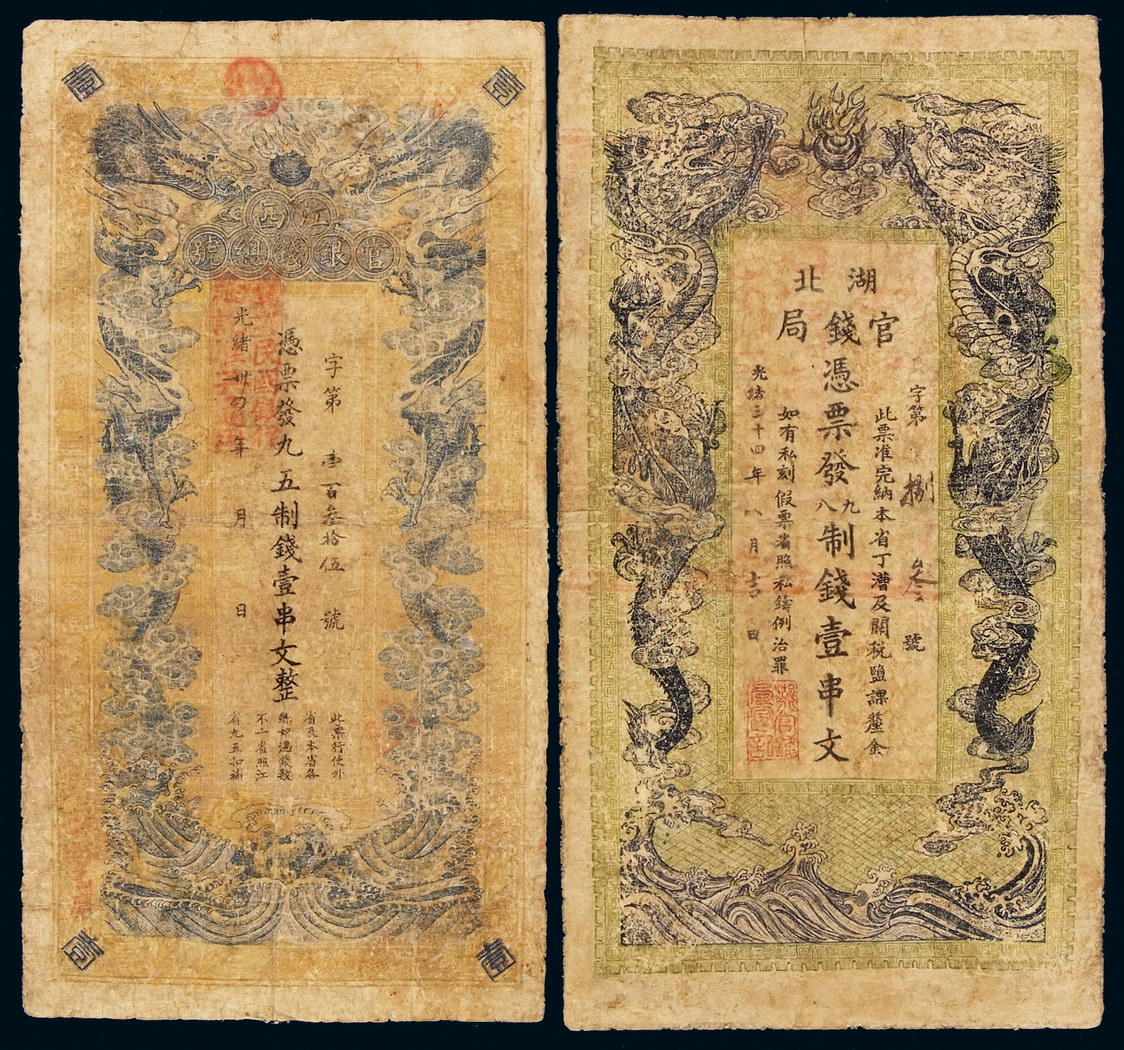 壹
壹
江西
官銀錢總號
字第 壹百叁拾伍 號
憑票發九五制錢壹串文整
光緒卅四年 月 日
此票行使外
省及本省各
不二省照江
省九五扣補
壹
壹
湖北
官錢局
字第 捌 叁 號
此票准完納本省丁漕及關稅鹽課釐金
憑票發九八制錢壹串文
如有私刻假票者照私鑄例治罪
光緒三十四年八月吉日